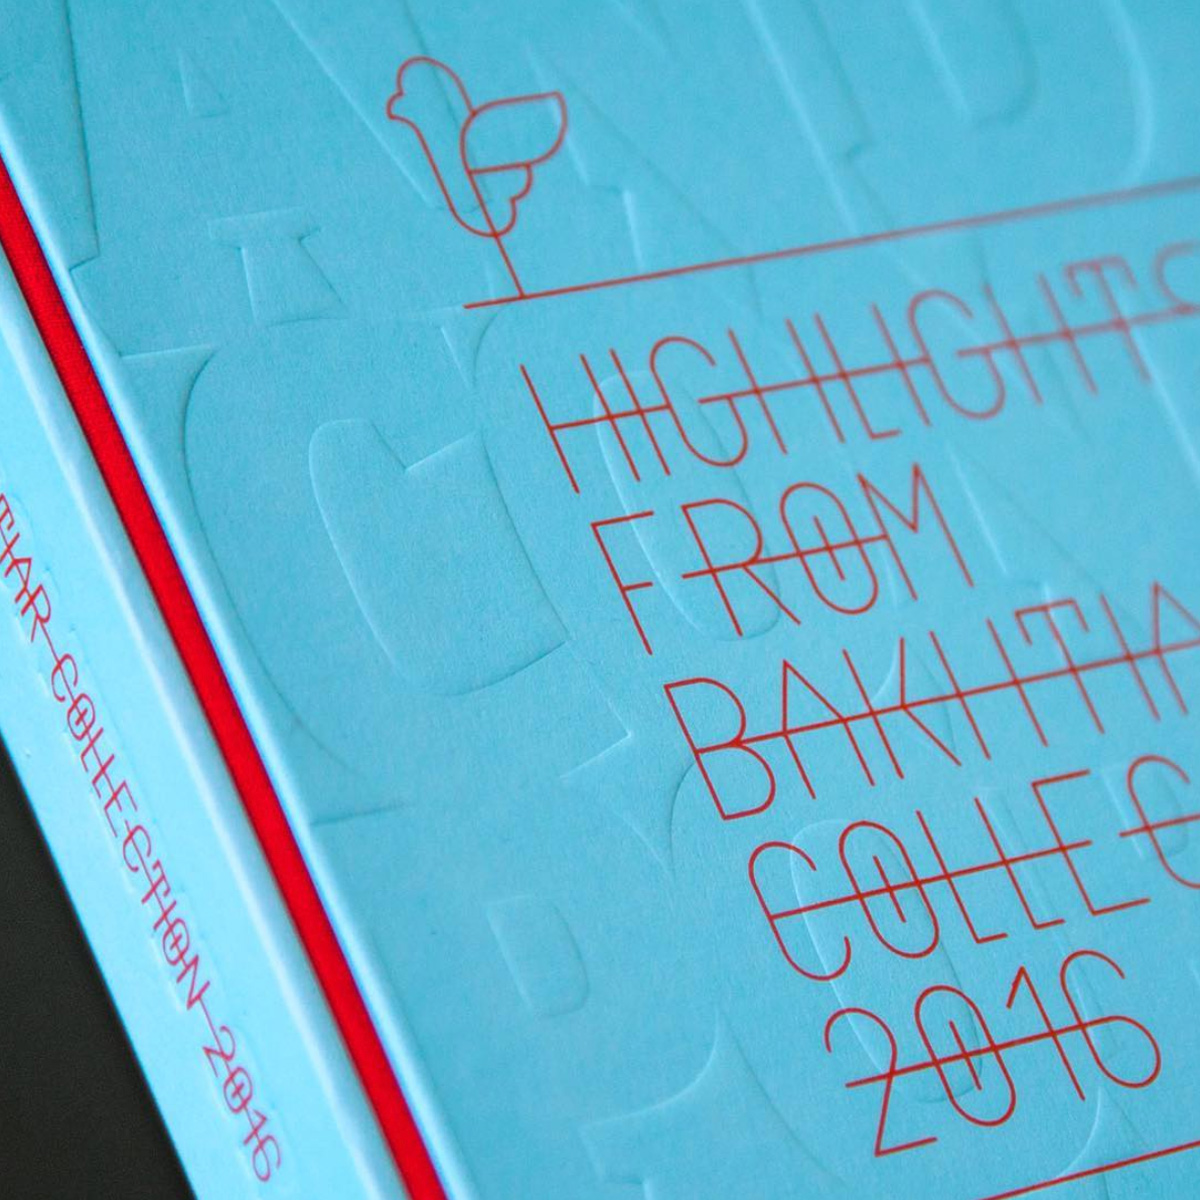 HIGHLIGHTS
FROM
BAKHTIA
COLLEC
2016
THAR COLLECTION 2016